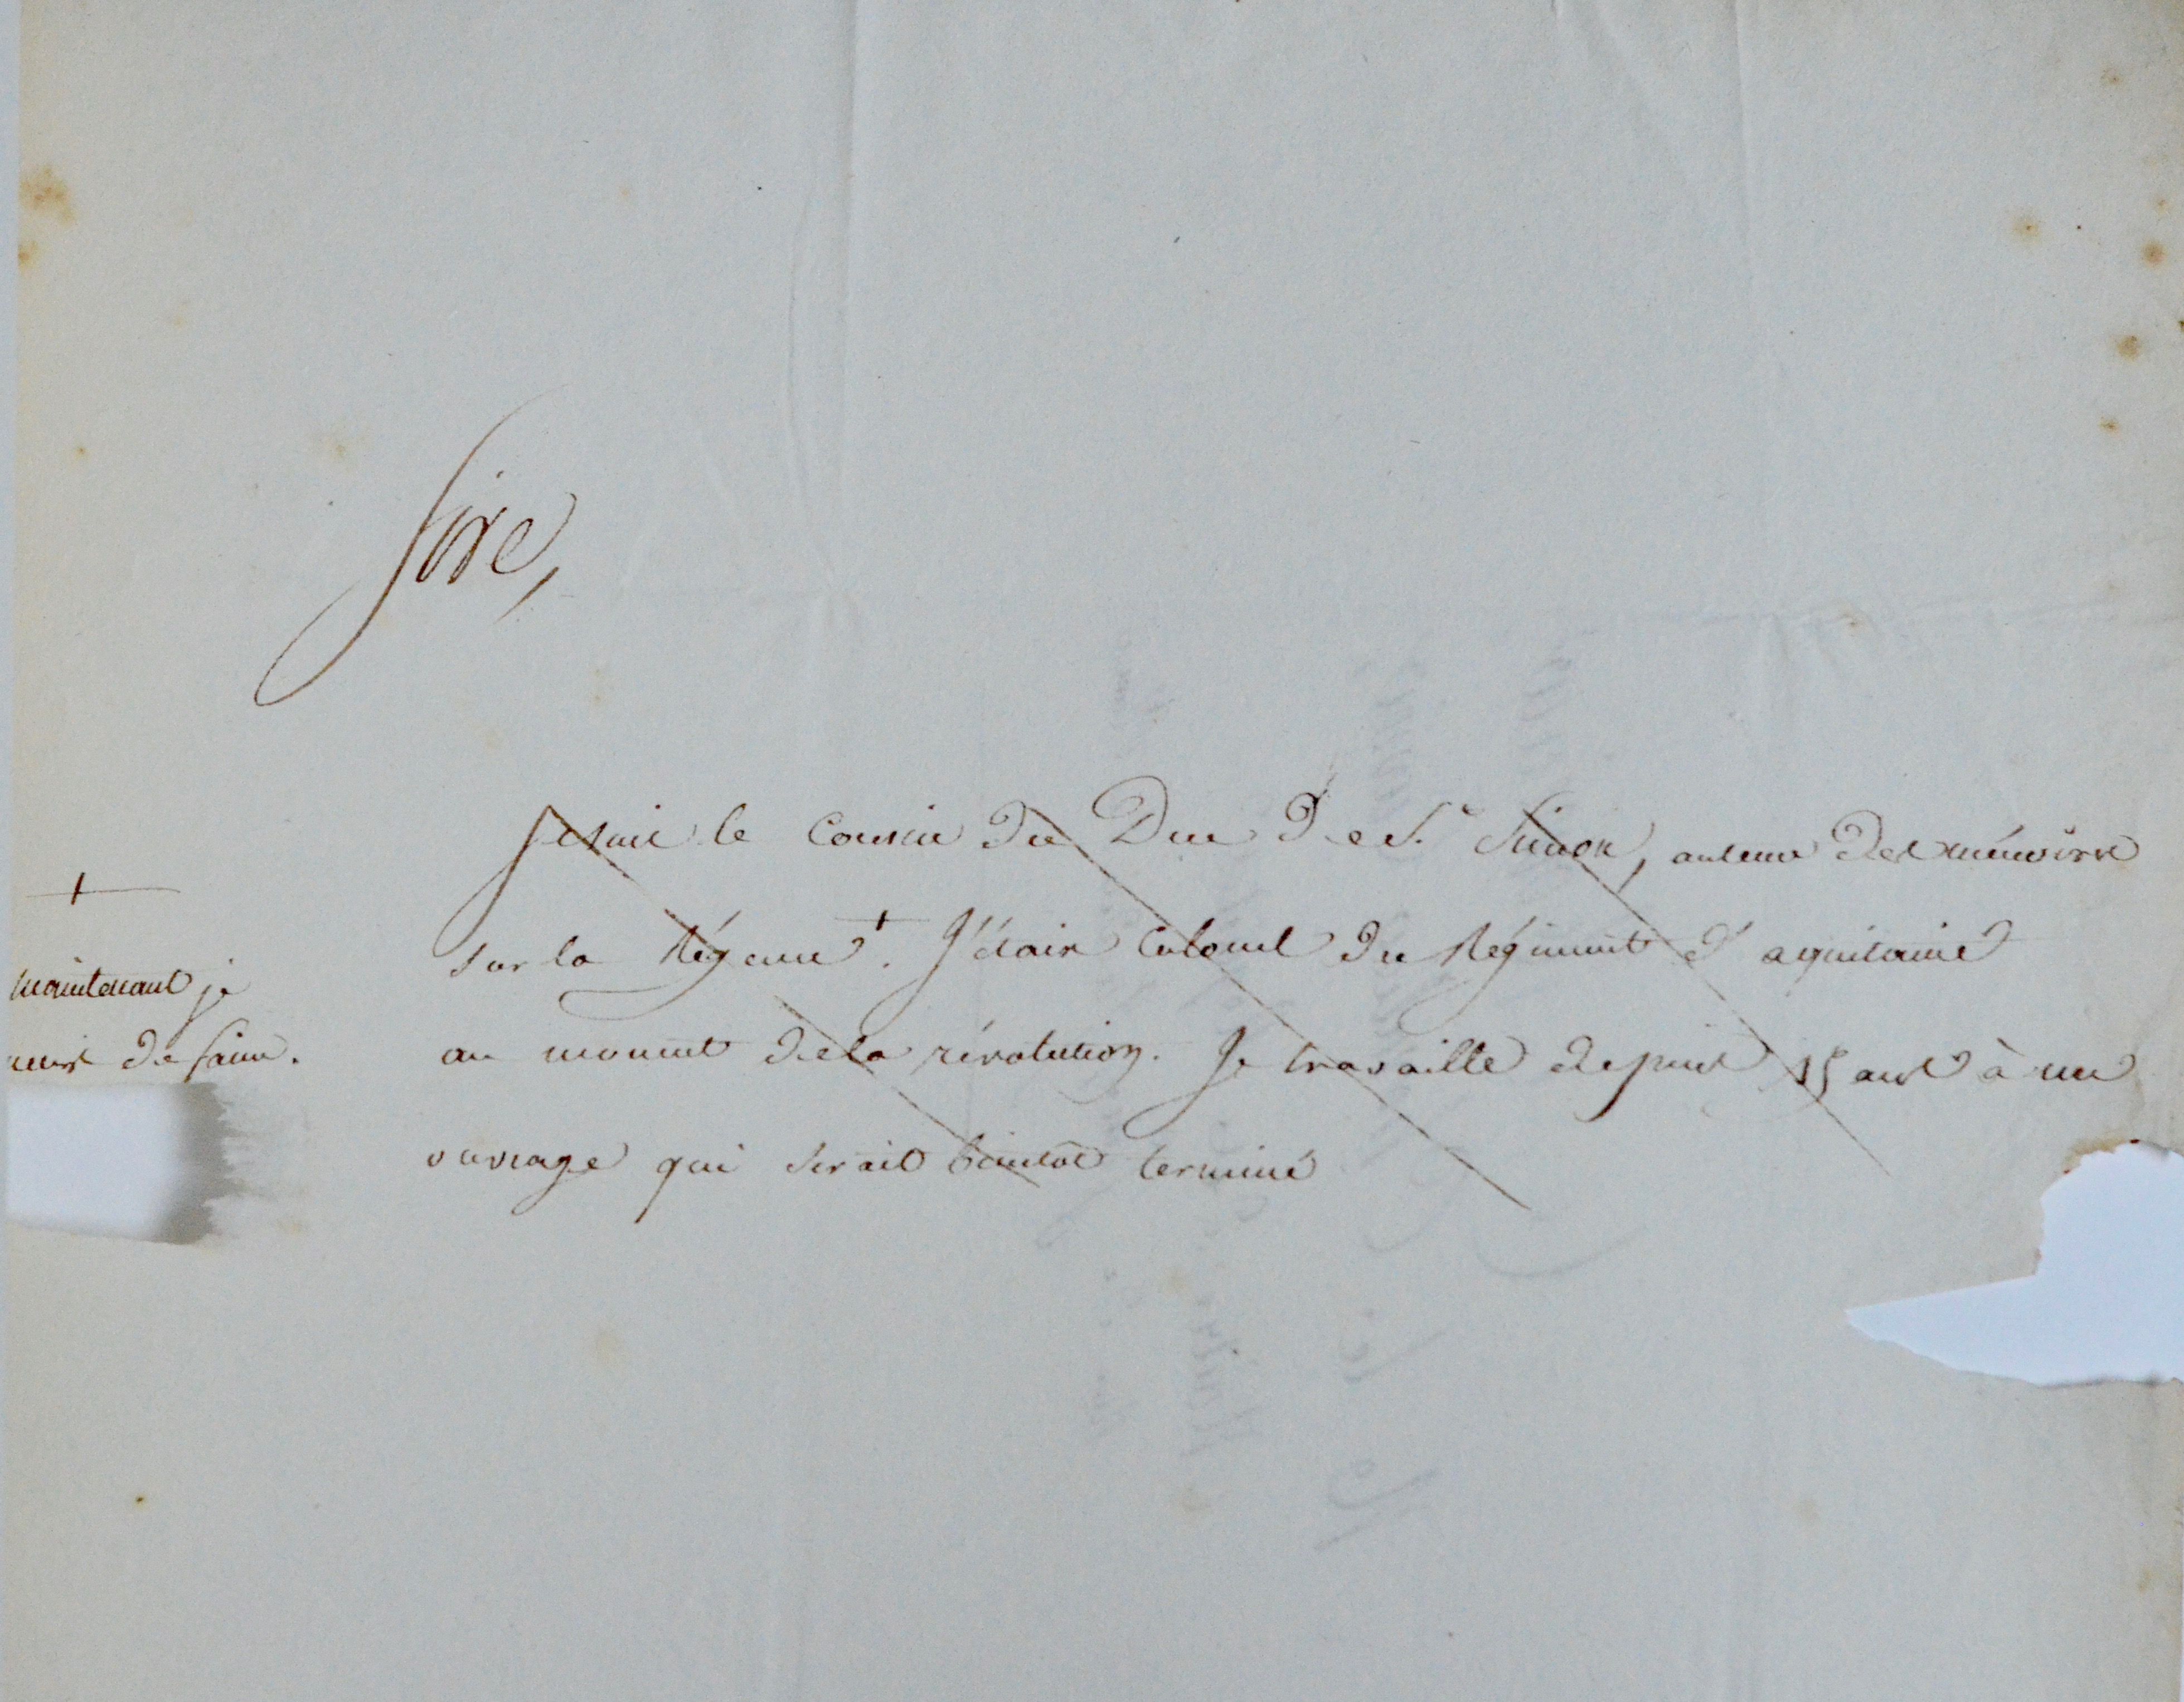 Sire,
Je suis le Cousin du Duc de St. Simon, auteur des mémoires
sur la Régence +. J'étais Colonel du Régiment d'aquitaine
au moment de la révolution. Je travaille depuis 15 ans à un
ouvrage qui serait bientôt terminé
+
maintenant je
meurs de faim.